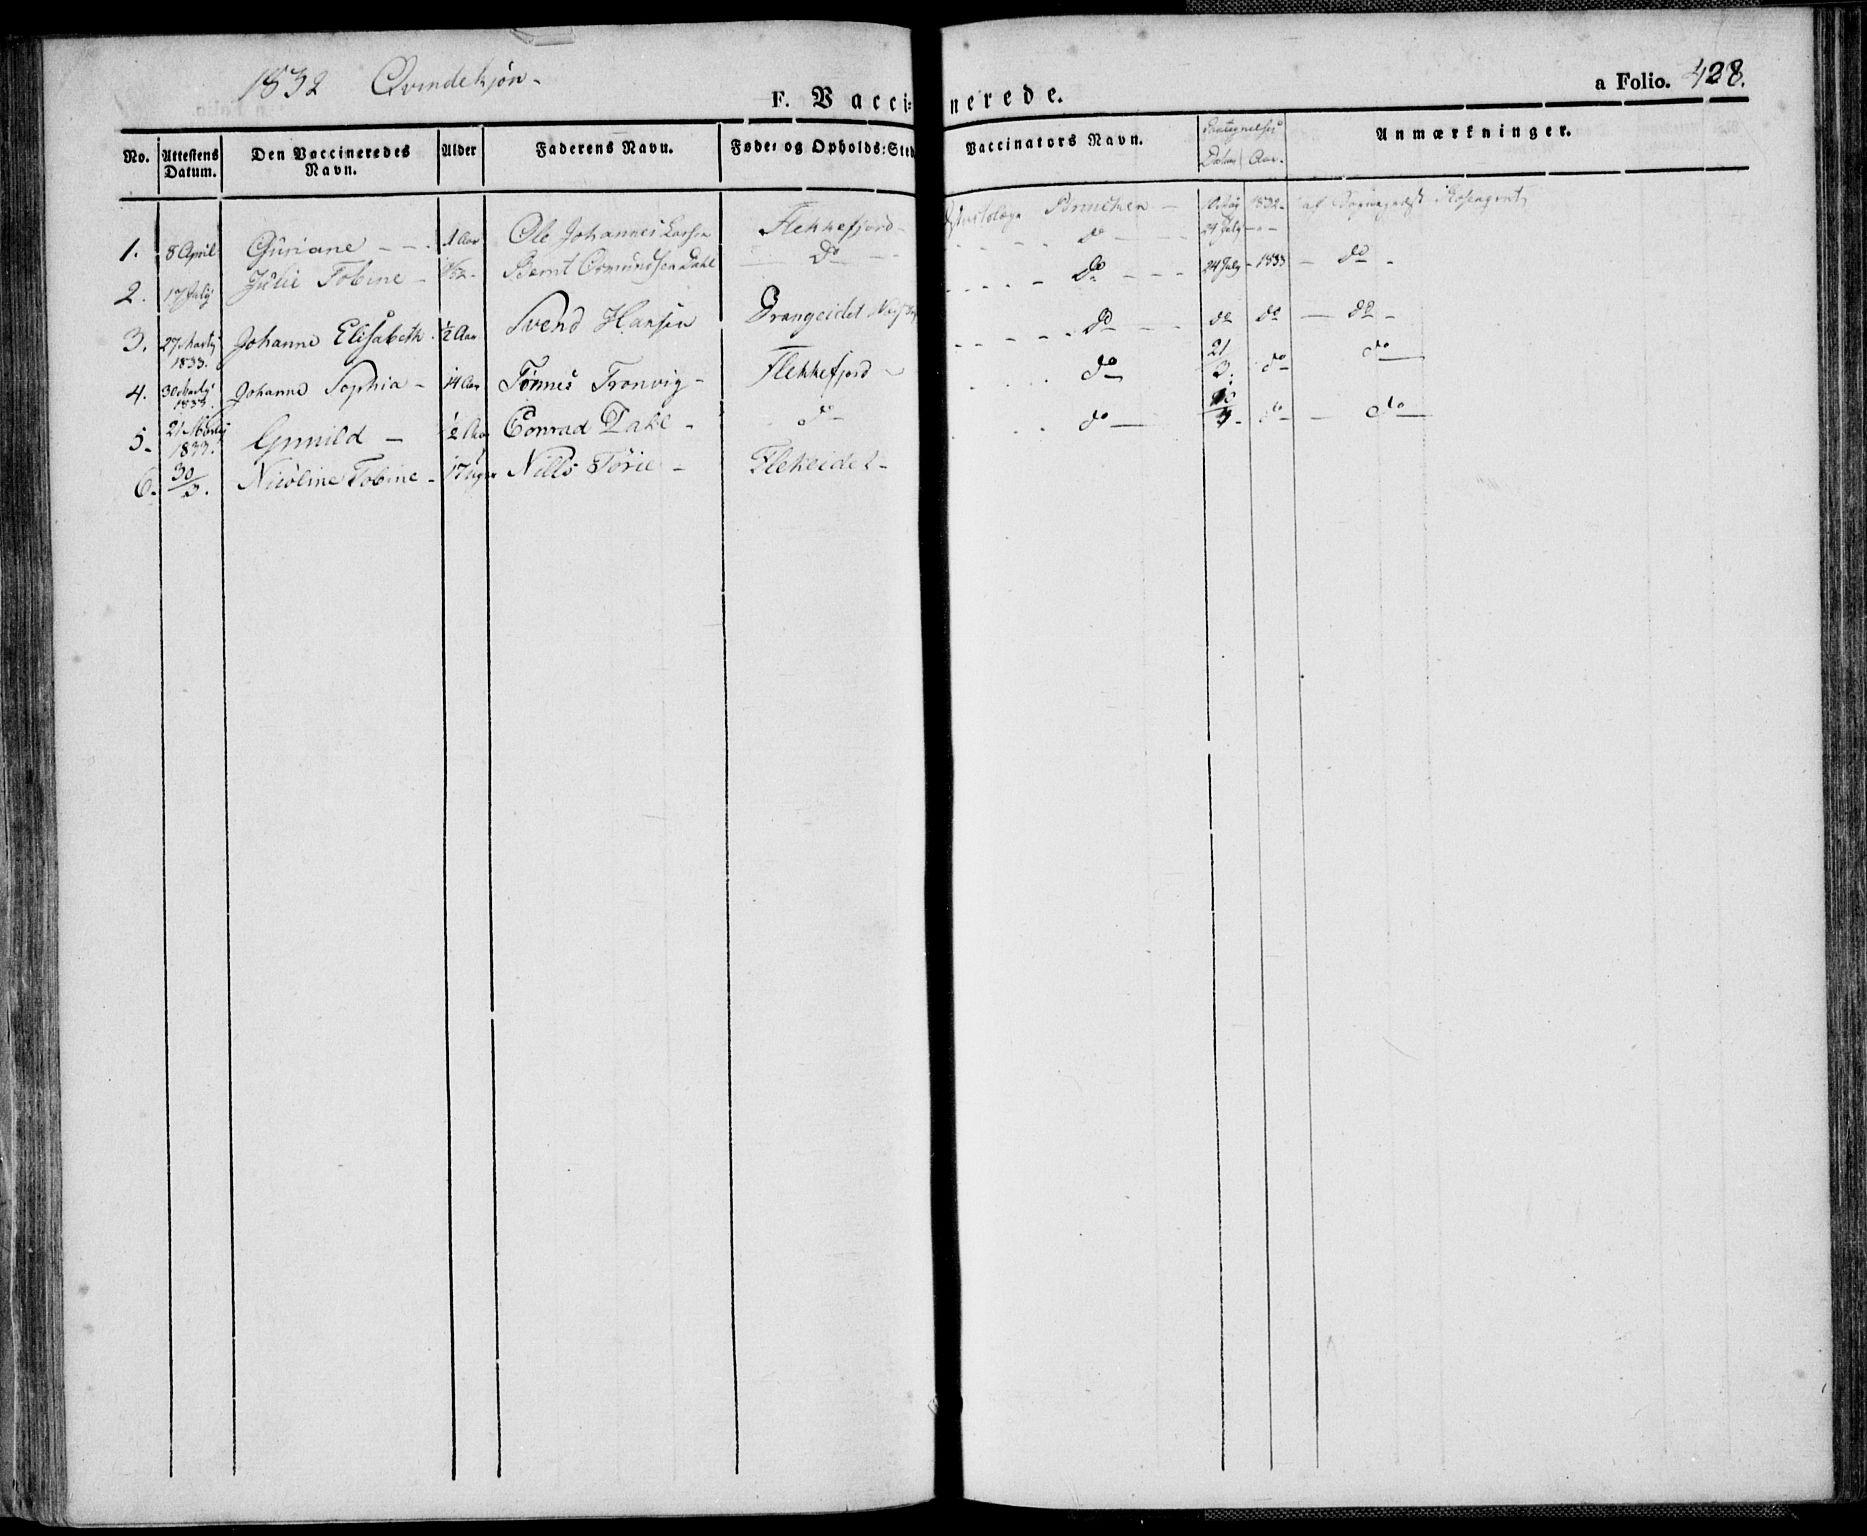 1832 Qvindekjøn -
F. Vaccinerede.
a Folio. 428.
No. | Attestens Datum. | Den Vaccineredes Navn. | Alder | Faderens Navn. | Føde- og Opholds-Sted | Vaccinators Navn. | Datum | Aar. | Anmærkninger.
1. | 8 April | Guriane - - - | 1 Aar | Ole Johannes Larsen | Flekkefjord - | 1832 - | af
2. | 17 July | Julie Tobine - | Bernt Osmundsen Dahl | Do - - | do - - | 24 July | - - -
3. | 27 Martz 1833. | Johanne Elisabeth - | ½ Aar | Svend Hansen | Drangeidet | do - - - | 24 July | - 1833 | - do -
4. | 30 Martz 1833. | Johanne Sophia - | 14 Aar | Tønnes Tronvig - | Flekkefjord - | do - - | do | do | - do -
5. | 21 Martz 1833. | Gunild - | ½ Aar | Conrad Dahl - | do - | do | 21/3. | do - | do
6. | 30/3. | Nicoline Tobine - | 17 Uger | Nills Tørie - | Flekeidet - | do - | do - | - do -